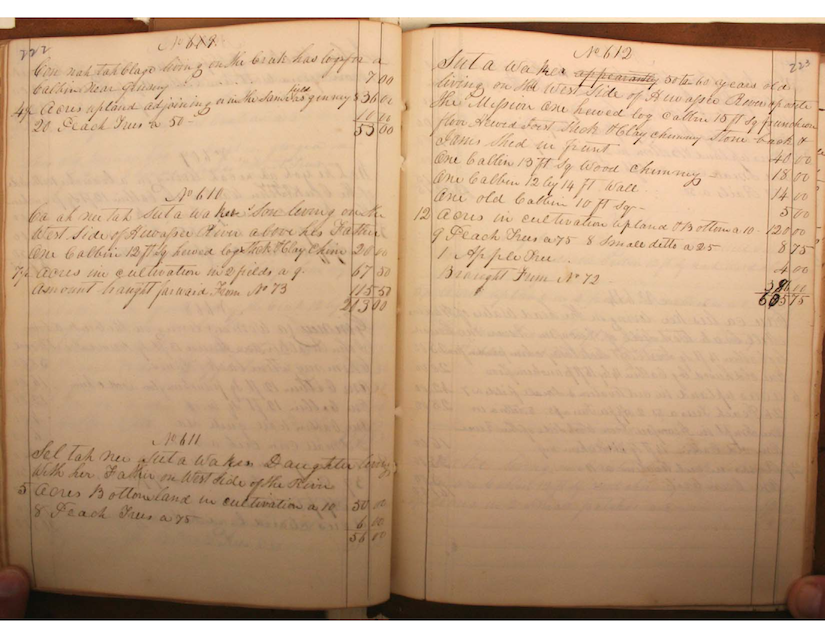 222
No 609
living on the Creek has logs for a
Cabbin near 7 00
4 1/2 Acres upland adjoining in the same 8 36 00
20 Peach Trees a 50 10 00
53 00
No 610
Ca ah ne tah Sut a Wakee Son living on the
West Side of Hiwassee River above his Father
One Cabbin 12 ft Sq hewed logs Stick & Clay Chim 20 00
7 1/2 Acres in cultivation in 2 fields a 9 67 50
Amount braught forward From No 73 115 50
213 00
No 611
Sel tah nee Sut a Wakees Daughter living
With her Father on West Side of the River
5 Acres Bottom land in cultivation a 10 50 00
8 Peach Trees a 75 6 00
56 00
223
No 612
Sut a Wakee appearantly 50 to 60 years old
living on the West Side of Hiwassee River opposite
the Mission One hewed log Cabbin 15 ft Sq puncheon
floor Hewed Joist Stick & Clay chimny Stone back &
Jams Shed in front 40 00
One Cabbin 13 ft Sq Wood Chimny 18 00
One Cabbin 12 by 14 ft Wall 14 00
One old Cabbin 10 ft Sq 5 00
12 Acres in cultivation Upland & Bottom a 10 120 00
9 Peach Trees a 75 8 Small ditto a 25 8 75
1 Apple Tree 4 00
Braught From No 72